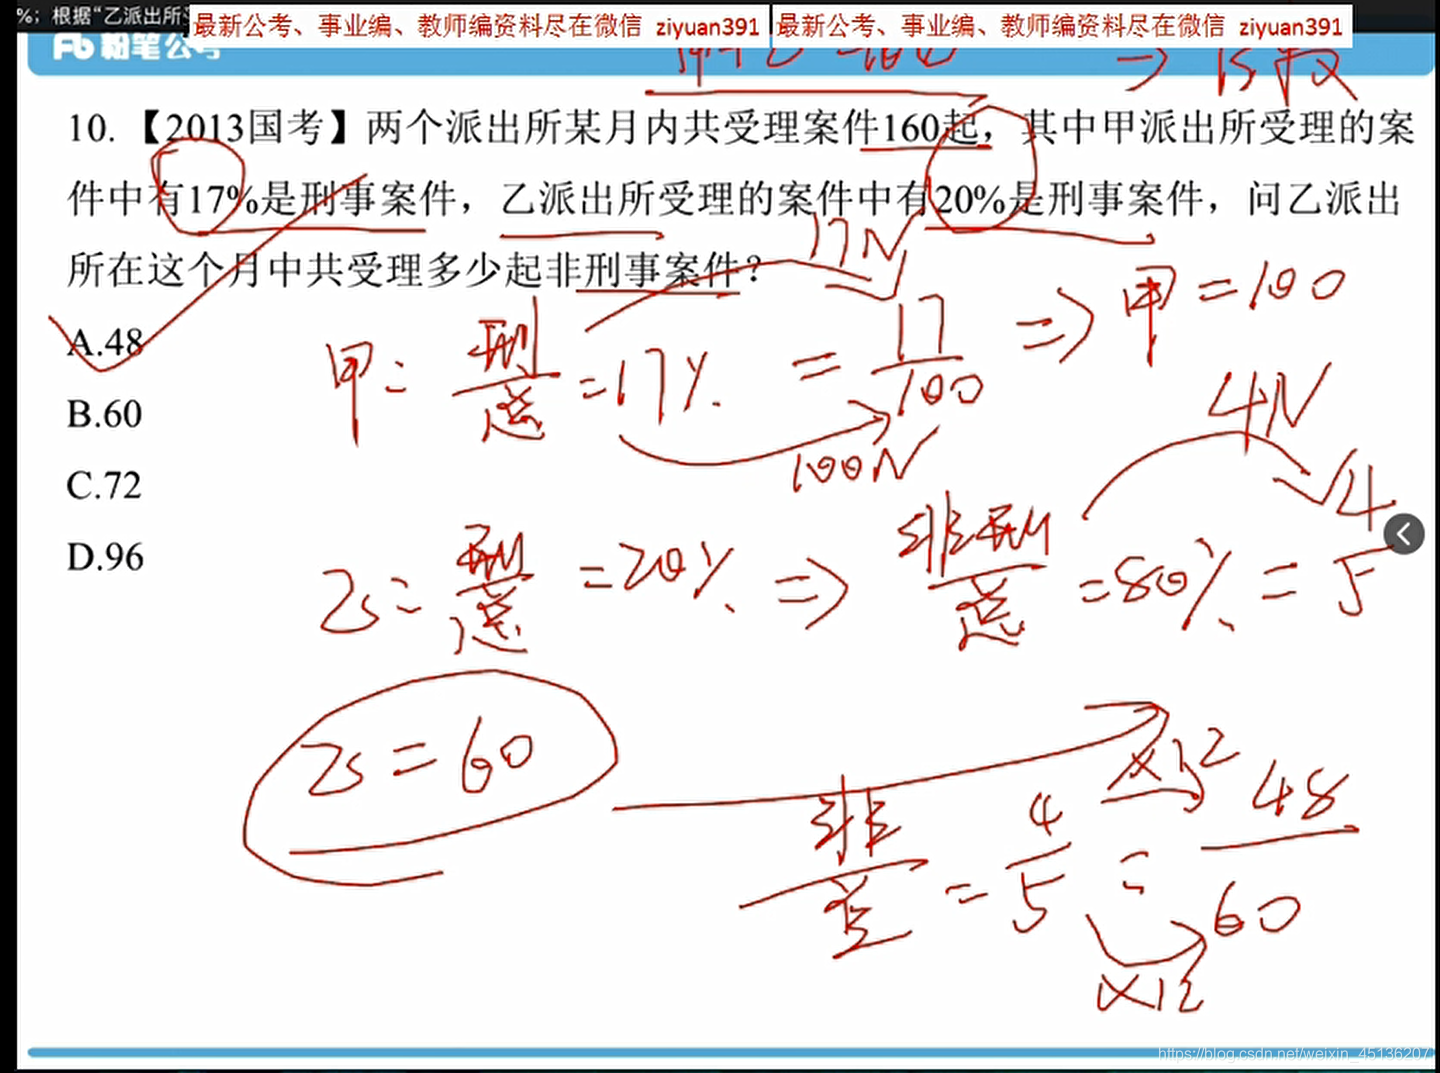 %；根据“乙派出所
最新公考、事业编、教师编资料尽在微信 ziyuan391
最新公考、事业编、教师编资料尽在微信 ziyuan391
粉笔公考
10.【2013国考】两个派出所某月内共受理案件160起，其中甲派出所受理的案
件中有17%是刑事案件，乙派出所受理的案件中有20%是刑事案件，问乙派出
所在这个月中共受理多少起非刑事案件？
A.48
B.60
C.72
D.96
17N
甲: 刑/总 = 17% = 17/100 => 甲 = 100
100N
4N
乙: 刑/总 = 20% => 非刑/总 = 80% = 4/5
乙 = 60
×12
非/总 = 4/5 = 48/60
×12
https://blog.csdn.net/weixin_45136207